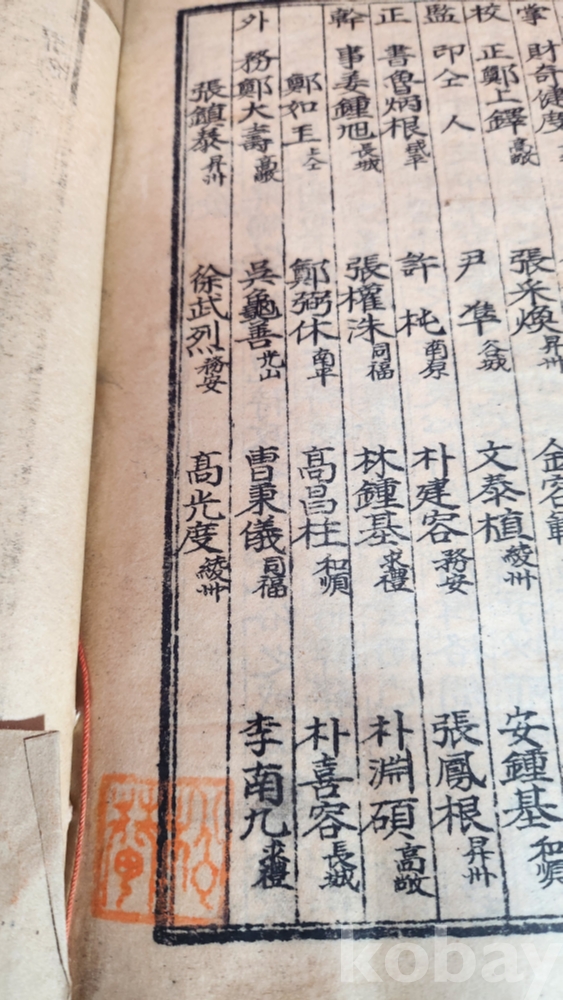 掌財奇健度
校正鄭上鐸高敞 張采煥昇州 金容
監印仝人 尹準谷城 文泰植綾州 安鍾基和順
正書魯炳根咸平 許杶南原 朴建容務安 張鳳根昇州
幹事姜鍾旭長城 張權洙同福 林鍾基求禮 朴淵碩高敞
鄭如王上仝 鄭弼休南平 高昌柱和順 朴喜容長城
外務鄭大壽高敞 吳龜善光山 曺秉儀同福 李南九求禮
張鎭泰昇州 徐武烈務安 高光度綾州
kobay